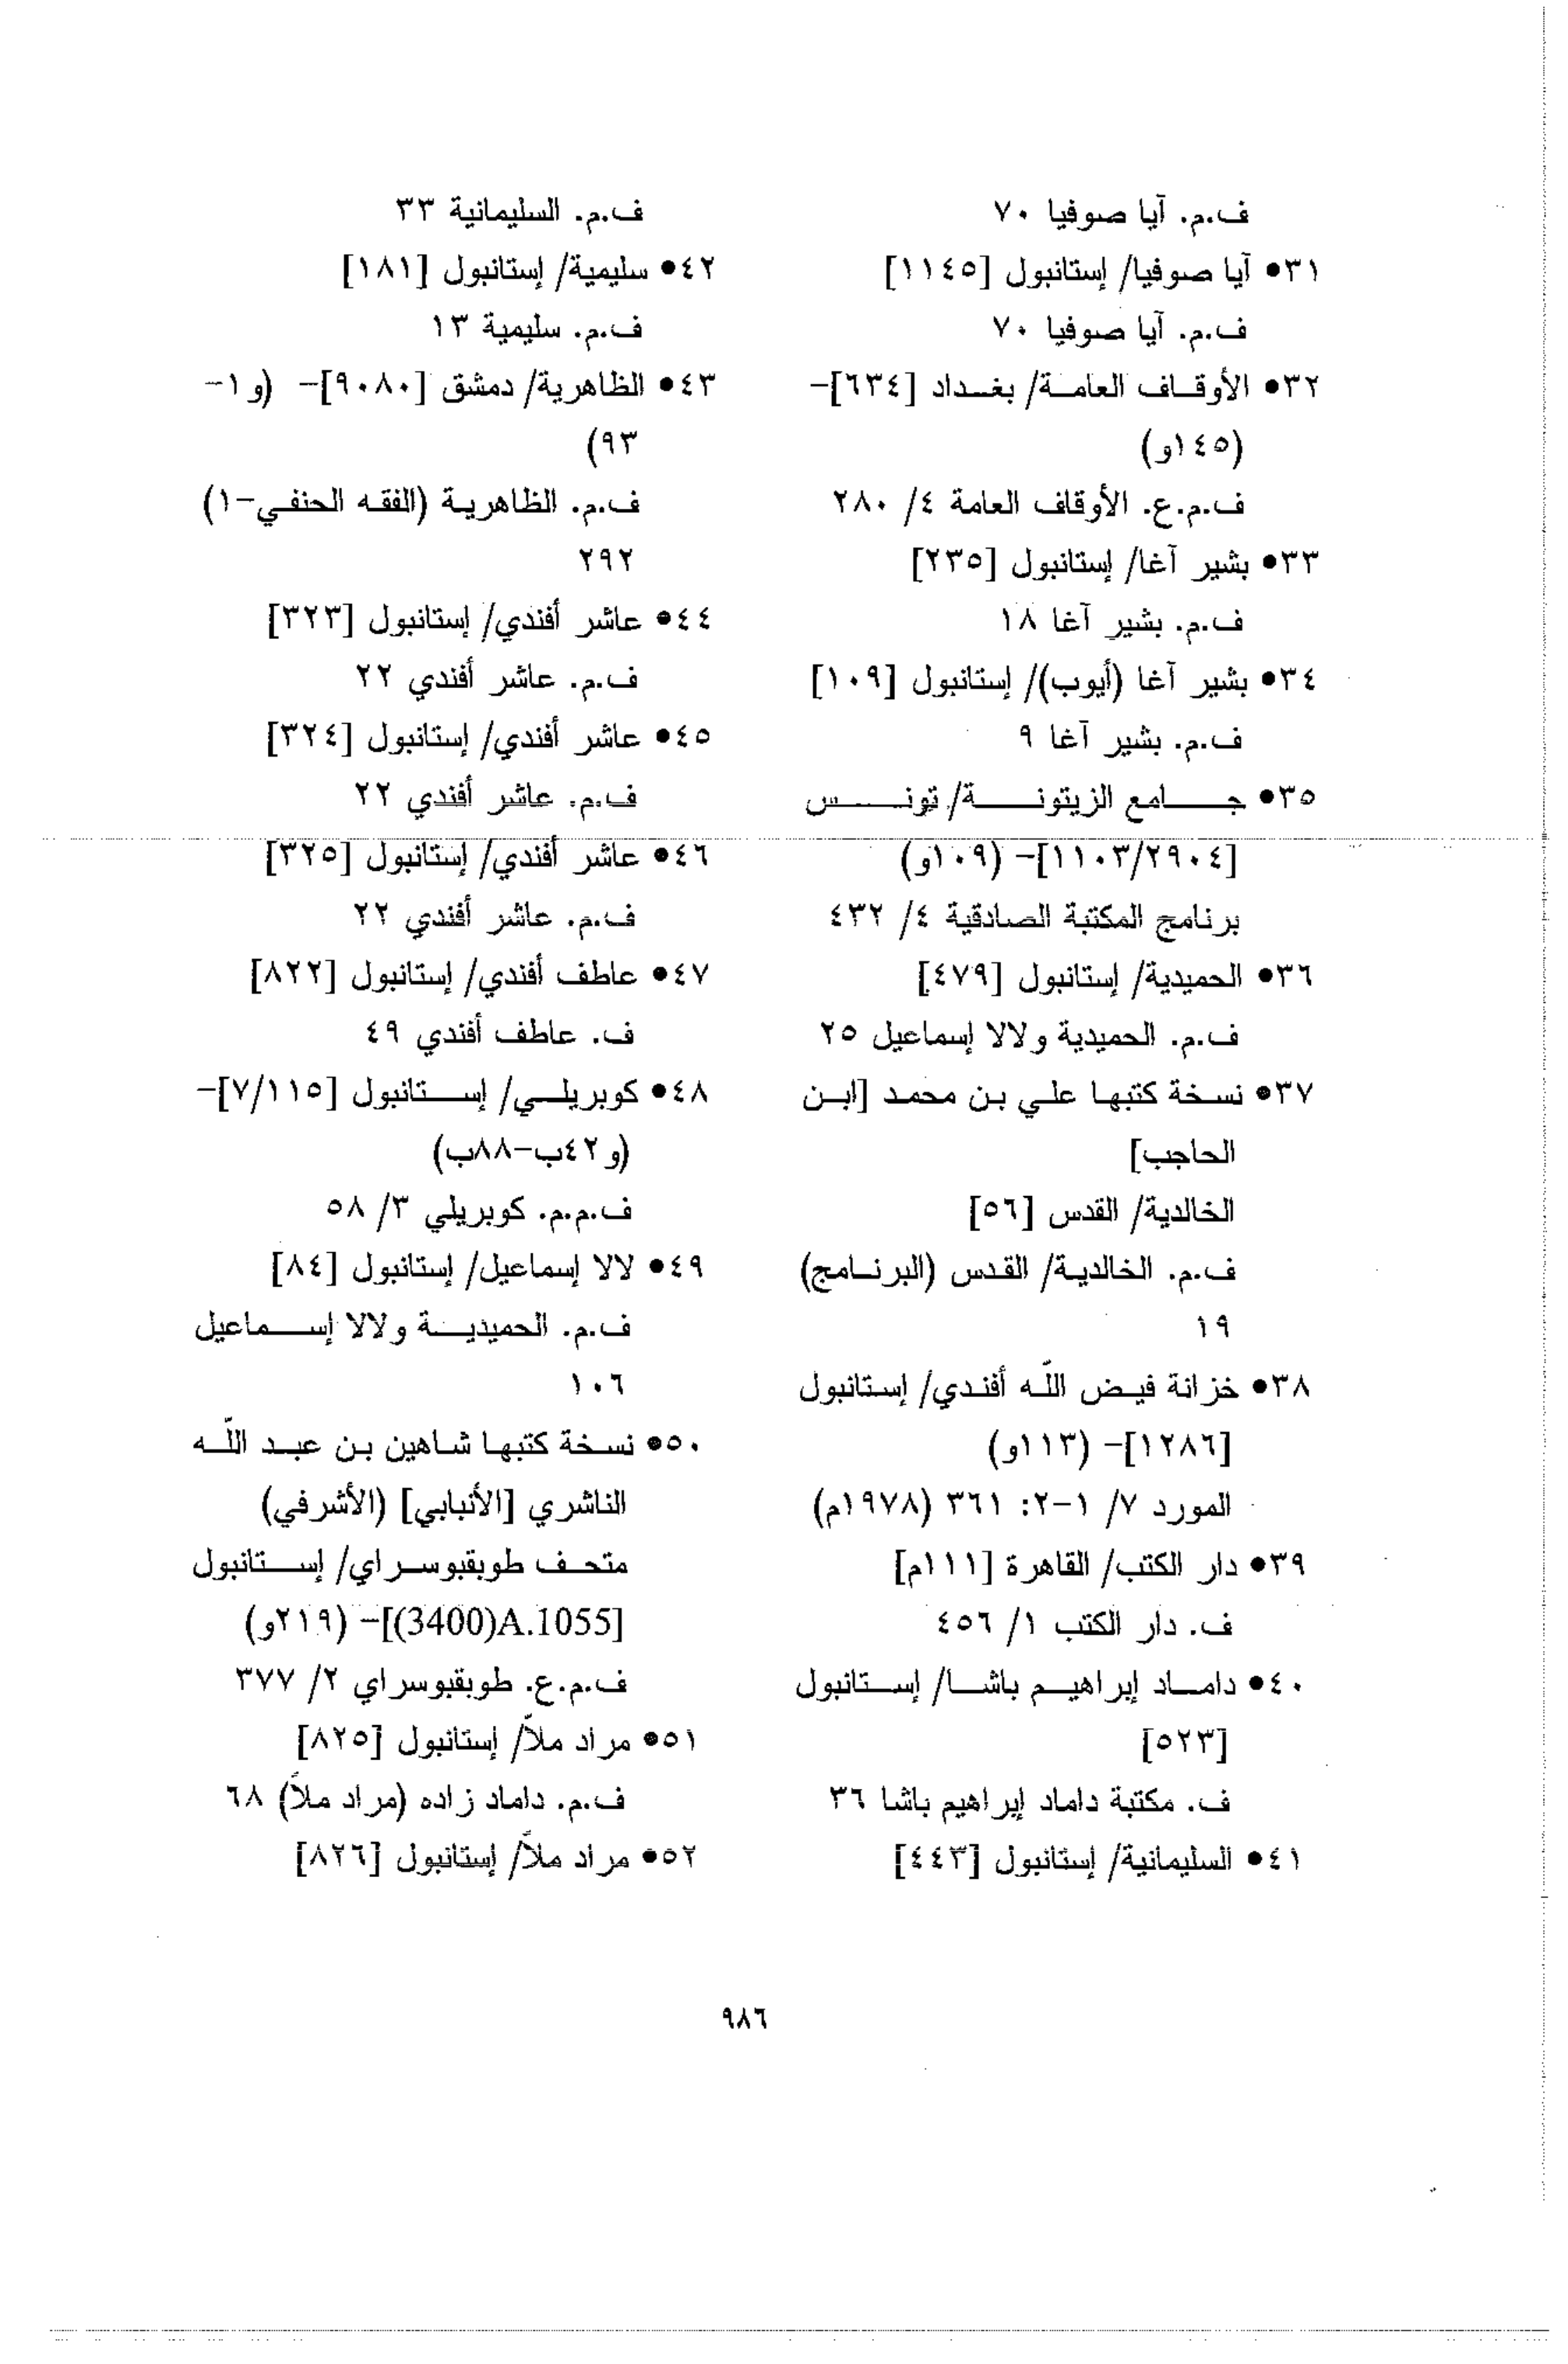 ف.م. آيا صوفيا ٧٠
٣١• آيا صوفيا/ إستانبول [١١٤٥]
ف.م. آيا صوفيا ٧٠
٣٢• الأوقاف العامة/ بغداد [٦٣٤]-
(١٤٥و)
ف.م.ع. الأوقاف العامة ٤/ ٢٨٠
٣٣• بشير آغا/ إستانبول [٢٣٥]
ف.م. بشير آغا ١٨
٣٤• بشير آغا (أيوب)/ إستانبول [١٠٩]
ف.م. بشير آغا ٩
٣٥• جامع الزيتونة/ تونس
[١١٠٣/٢٩٠٤]- (١٠٩و)
برنامج المكتبة الصادقية ٤/ ٤٣٢
٣٦• الحميدية/ إستانبول [٤٧٩]
ف.م. الحميدية ولالا إسماعيل ٢٥
٣٧• نسخة كتبها علي بن محمد [ابن
الحاجب]
الخالدية/ القدس [٥٦]
ف.م. الخالدية/ القدس (البرنامج)
١٩
٣٨• خزانة فيض اللّه أفندي/ إستانبول
[١٢٨٦]- (١١٣و)
المورد ٧/ ١-٢: ٣٦١ (١٩٧٨م)
٣٩• دار الكتب/ القاهرة [١١١م]
ف. دار الكتب ١/ ٤٥٦
٤٠• داماد إبراهيم باشا/ إستانبول
[٥٢٣]
ف. مكتبة داماد إبراهيم باشا ٣٦
٤١• السليمانية/ إستانبول [٤٤٣]
ف.م. السليمانية ٣٣
٤٢• سليمية/ إستانبول [١٨١]
ف.م. سليمية ١٣
٤٣• الظاهرية/ دمشق [٩٠٨٠]- (و١-
٩٣)
ف.م. الظاهرية (الفقه الحنفي-١)
٢٩٢
٤٤• عاشر أفندي/ إستانبول [٣٢٣]
ف.م. عاشر أفندي ٢٢
٤٥• عاشر أفندي/ إستانبول [٣٢٤]
ف.م. عاشر أفندي ٢٢
٤٦• عاشر أفندي/ إستانبول [٣٢٥]
ف.م. عاشر أفندي ٢٢
٤٧• عاطف أفندي/ إستانبول [٨٢٢]
ف. عاطف أفندي ٤٩
٤٨• كوبريلي/ إستانبول [٧/١١٥]-
(و٤٢ب-٨٨ب)
ف.م.م. كوبريلي ٣/ ٥٨
٤٩• لالا إسماعيل/ إستانبول [٨٤]
ف.م. الحميدية ولالا إسماعيل
١٠٦
٥٠• نسخة كتبها شاهين بن عبد اللّه
الناشري [الأنبابي] (الأشرفي)
متحف طوبقبوسراي/ إستانبول
[A.1055(3400)]- (٢١٩و)
ف.م.ع. طوبقبوسراي ٢/ ٣٧٧
٥١• مراد ملاّ/ إستانبول [٨٢٥]
ف.م. داماد زاده (مراد ملاّ) ٦٨
٥٢• مراد ملاّ/ إستانبول [٨٢٦]
٩٨٦